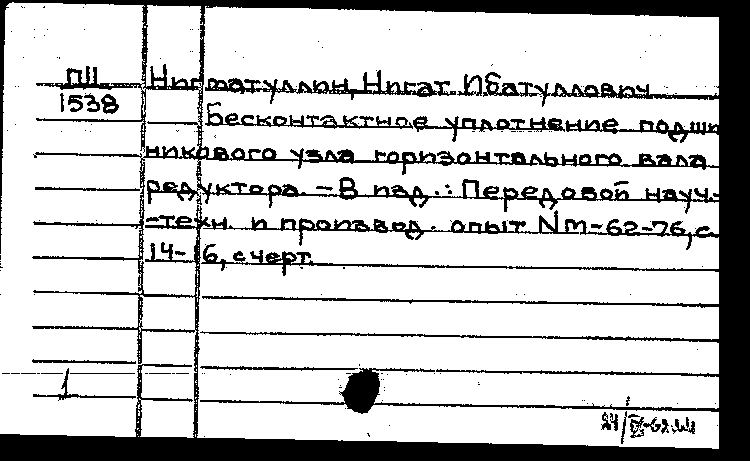 П11 Нигматуллин, Нигат Ибатуллович
1538 Бесконтактное уплотнение подшип
никового узла горизонтального вала
редуктора. – В изд.: Передовой науч.-
-техн. и производ. опыт №м-62-76, с.
14-16, с черт.
1
24/IV-62